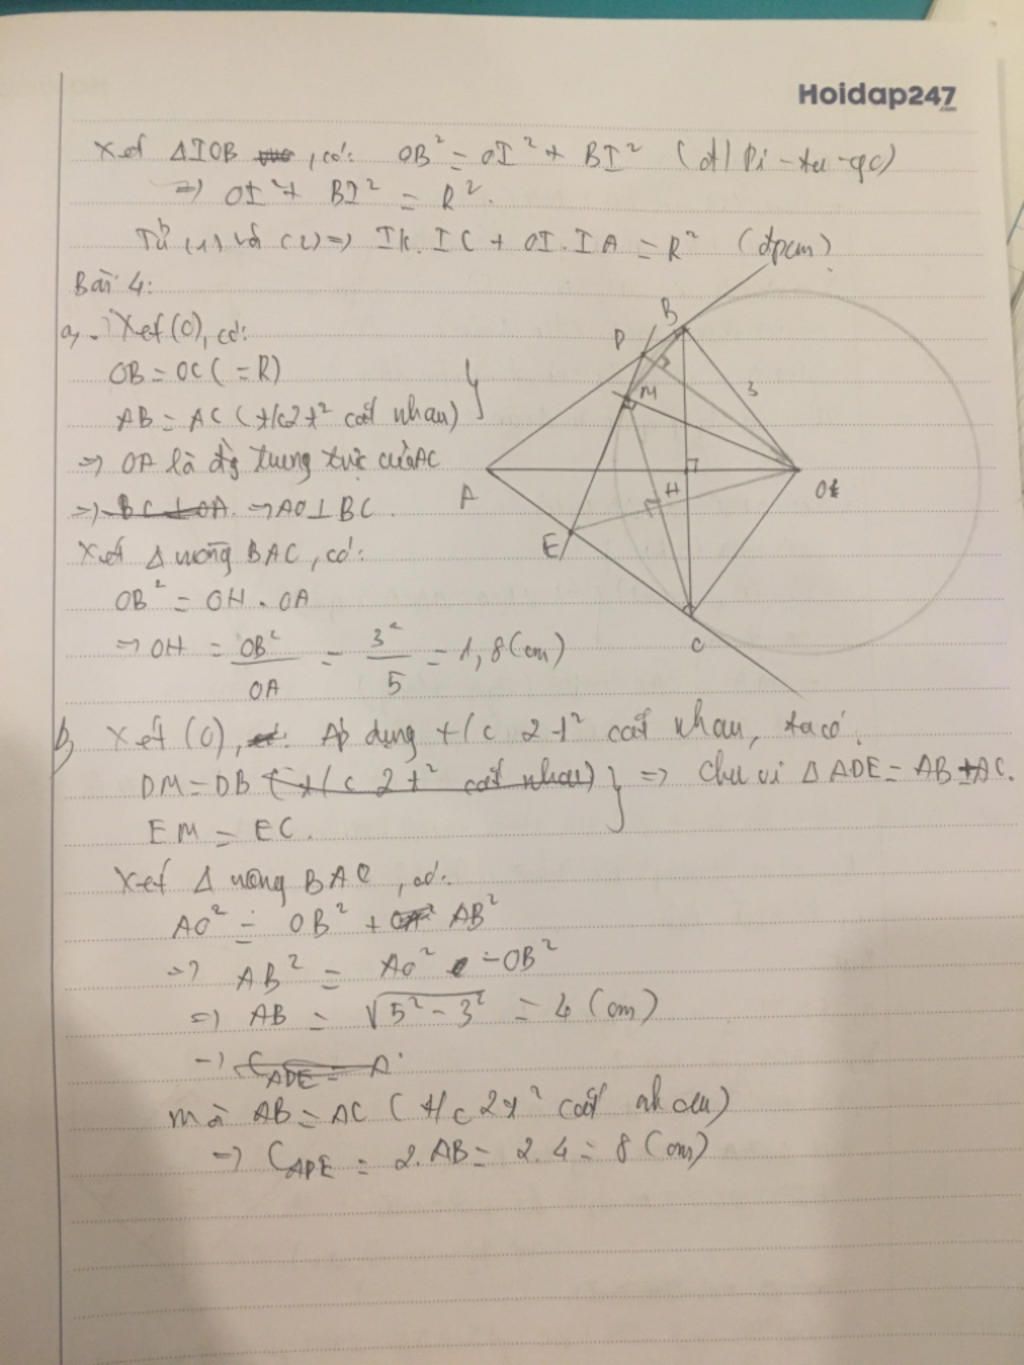 Hoidap247
.com
Xét ΔIOB, có: OB² = OI² + BI² (đ/l Pi-ta-go)
=> OI² + BI² = R².
Từ (1) và (2) => IK.IC + OI.IA = R² (đpcm)
Bài 4:
a, Xét (O), có:
OB = OC (= R)
AB = AC (t/c 2 t² cắt nhau)
=> OA là đg trung trực của AC
=> BC ⊥ OA. => AO ⊥ BC.
Xét Δ vuông BAC, có:
OB² = OH . OA
=> OH = OB²/OA = 3²/5 = 1,8 (cm)
B
D
M
3
A
H
O
E
C
b, Xét (O), Áp dụng t/c 2 t² cắt nhau, ta có:
DM = DB (t/c 2 t² cắt nhau) } => Chu vi Δ ADE = AB + AC.
EM = EC.
Xét Δ vuông BAO, có:
AO² = OB² + AB²
=> AB² = AO² - OB²
=> AB = √5² - 3² = 4 (cm)
=> C ADE = A
mà AB = AC (t/c 2 t² cắt nhau)
=> C ADE = 2.AB = 2.4 = 8 (cm)